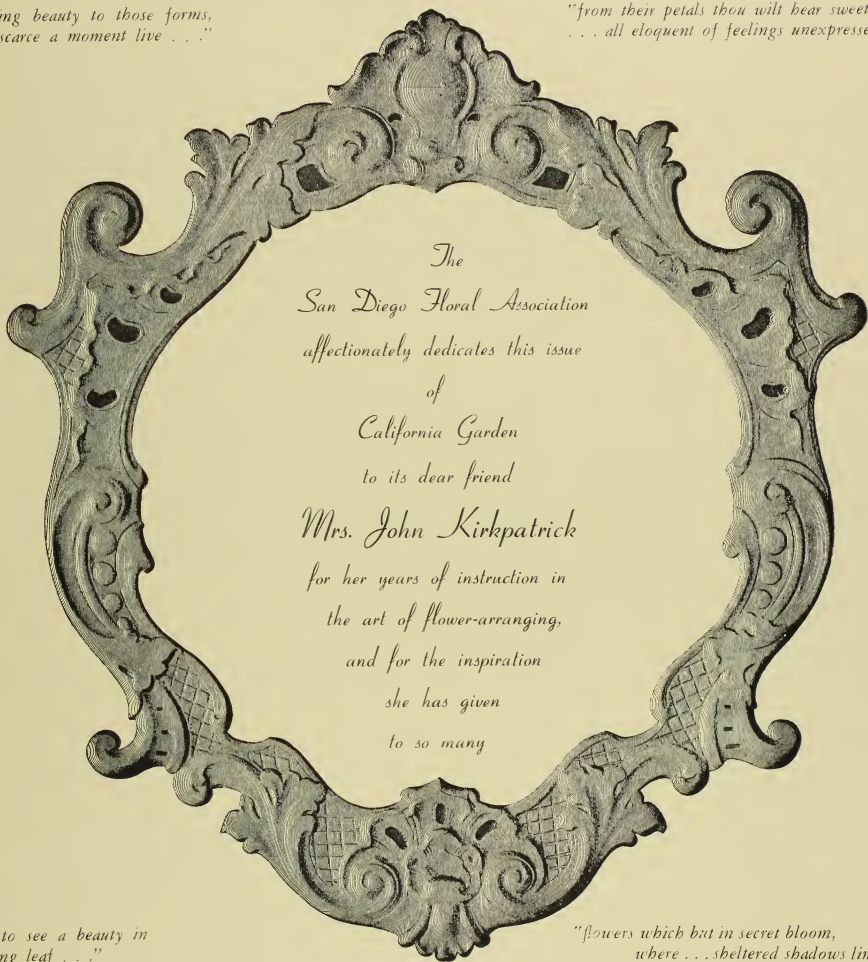 ing beauty to those forms,
scarce a moment live . . ."
"from their petals thou wilt hear sweet
. . . all eloquent of feelings unexpresse
The
San Diego Floral Association
affectionately dedicates this issue
of
California Garden
to its dear friend
Mrs. John Kirkpatrick
for her years of instruction in
the art of flower-arranging,
and for the inspiration
she has given
to so many
to see a beauty in
ng leaf . . ."
"flowers which but in secret bloom,
where . . . sheltered shadows lin